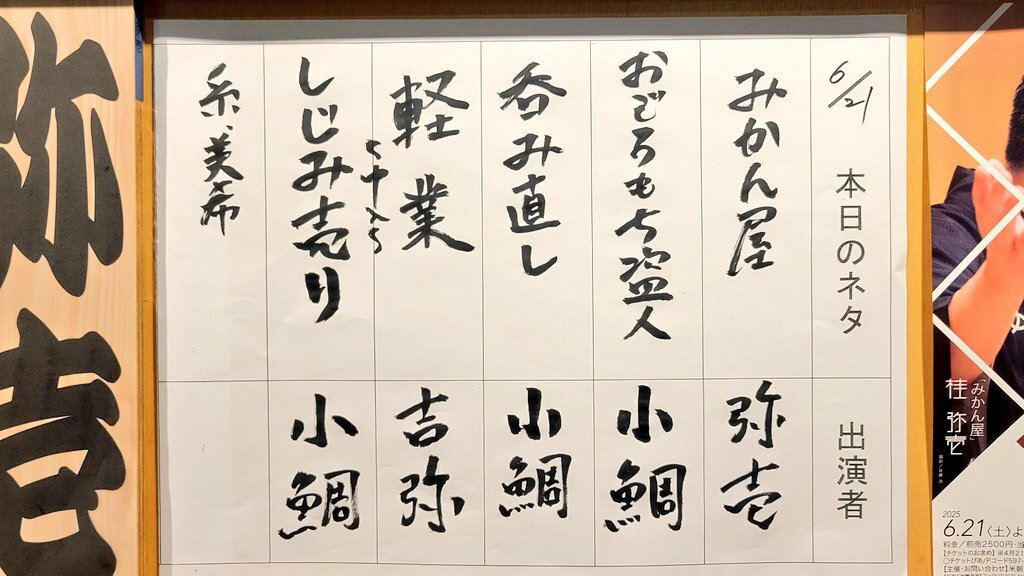 6/21
本日のネタ
出演者
みかん屋
弥壱
おごろもち盗人
小鯛
呑み直し
小鯛
軽業
吉弥
〜中入り〜
しじみ売り
小鯛
糸、美希
弥吉
「みかん屋」
桂 弥壱
2025
6.21〈土〉よ
料金／前売2500円・当
【チケットのお求め】※4月21
〇チケットぴあ/Pコード597-
【主催・お問い合わせ】米朝